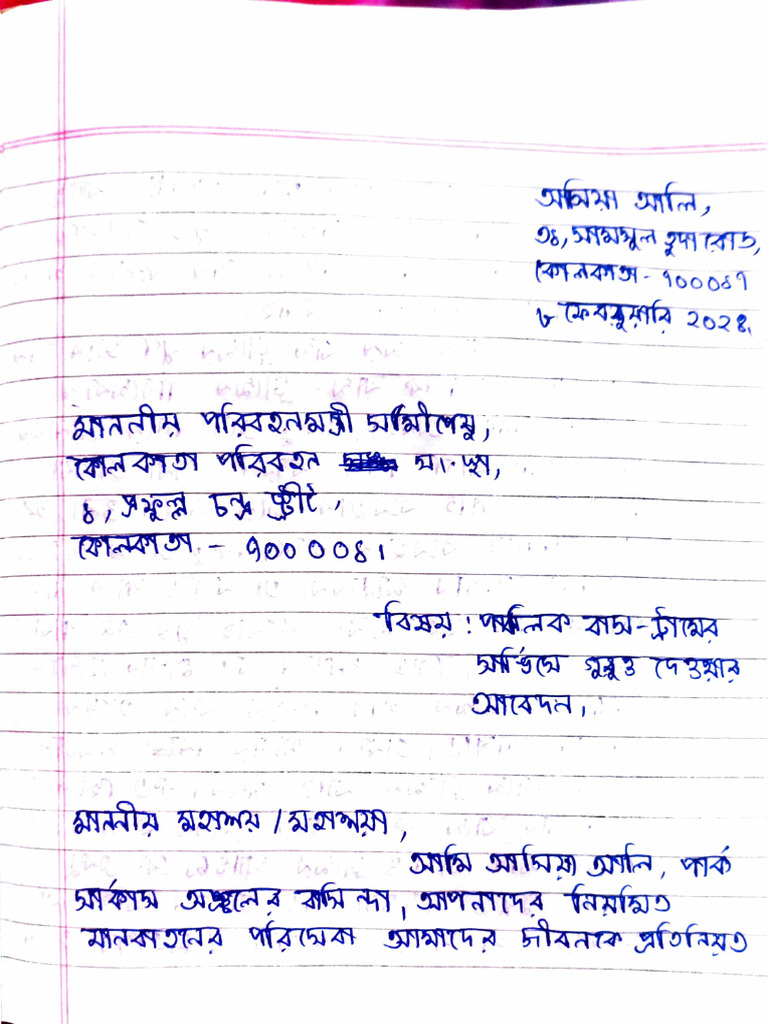 আসিয়া আলি,
৩৪, সামসুল হুদা রোড,
কোলকাতা - ৭০০০১৭
৮ ফেবরুয়ারি ২০২৪,
মাননীয় পরিবহনমন্ত্রী সমীপেষু,
কোলকাতা পরিবহন
৪, প্রফুল্ল চন্দ্র স্ট্রীট,
কোলকাতা - ৭০০০০৪।
বিষয় : পাবলিক বাস-ট্রামের
সার্ভিসে গুরুত্ব দেওয়ার
আবেদন,
মাননীয় মহাশয় / মহাশয়া,
আমি আসিয়া আলি, পার্ক
সার্কাস অঞ্চলের বাসিন্দা, আপনাদের নিয়মিত
যানবাহনের পরিষেবা আমাদের জীবনকে প্রতিনিয়ত